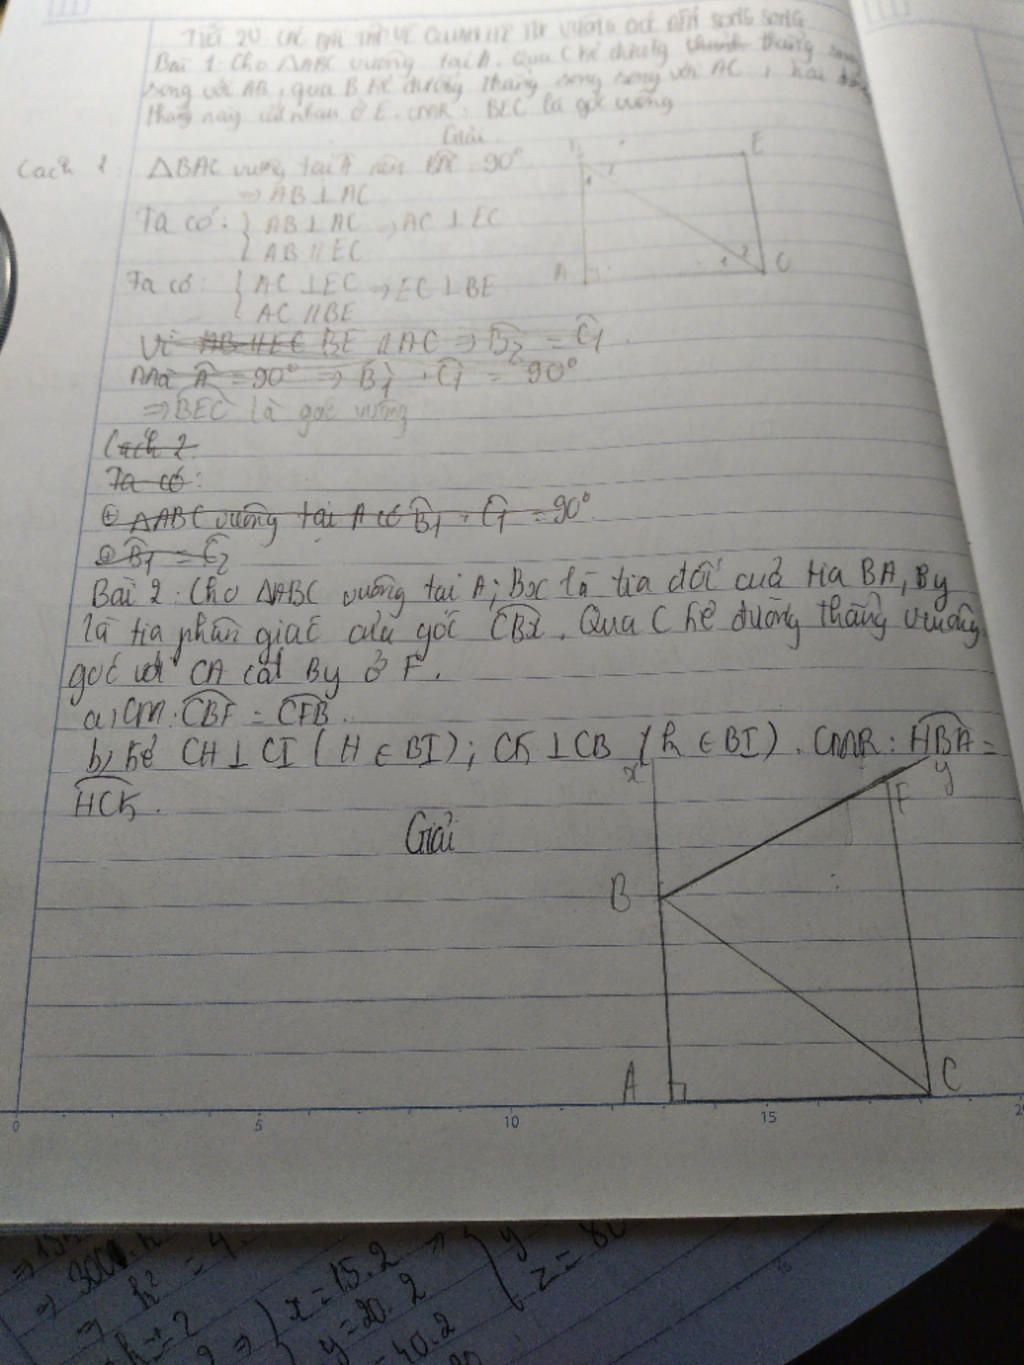 TIẾT 20: CÁC BÀI TẬP VỀ QUAN HỆ TỪ VUÔNG GÓC ĐẾN SONG SONG
Bài 1: Cho △ABC vuông tại A. Qua C kẻ đường thẳng song
song với AB, qua B kẻ đường thẳng song song với AC, hai đường
thẳng này cắt nhau ở E. CMR: BEC là góc vuông
Giải
Cách 1: △BAC vuông tại A nên BAC = 90°
⇒ AB ⊥ AC
Ta có: { AB ⊥ AC ⇒ AC ⊥ EC
AB // EC
Ta có: { AC ⊥ EC ⇒ EC ⊥ BE
AC // BE
Vì AB // EC BE // AC ⇒ B2 = C1
Mà A = 90° ⇒ B1 + C1 = 90°
⇒ BEC là góc vuông
Cách 2:
Ta có:
⊕ △ABC vuông tại A có B1 + C1 = 90°
⊕ B1 = C2
Bài 2: Cho △ABC vuông tại A; Bx là tia đối của tia BA, By
là tia phân giác của góc CBx. Qua C kẻ đường thẳng vuông
góc với CA cắt By ở F.
a, CM: CBF = CFB.
b, Kẻ CH ⊥ CI (H ∈ BI); CK ⊥ CB (K ∈ BI). CMR: HBA =
HCK.
Giải
E
A
C
1
2
x
y
F
B
A
C
0 5 10 15 20
⇒ 300
⇒ k² = 4
x = 15.2
y = 20.2
40.2